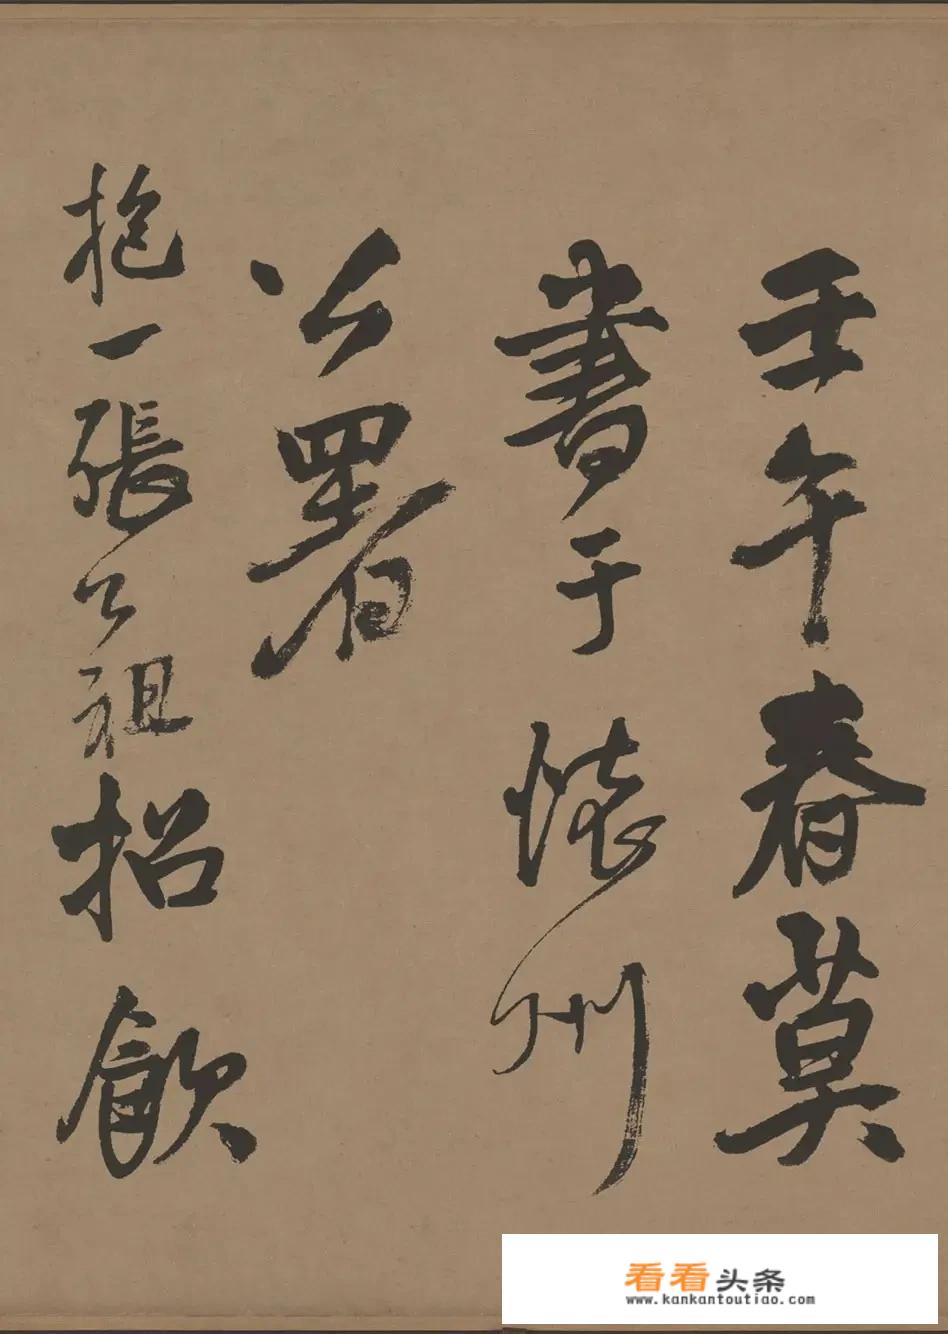 壬午春莫
書于懷州
公署
抱一張公祖招飲
看看头条
www.kankantoutiao.com